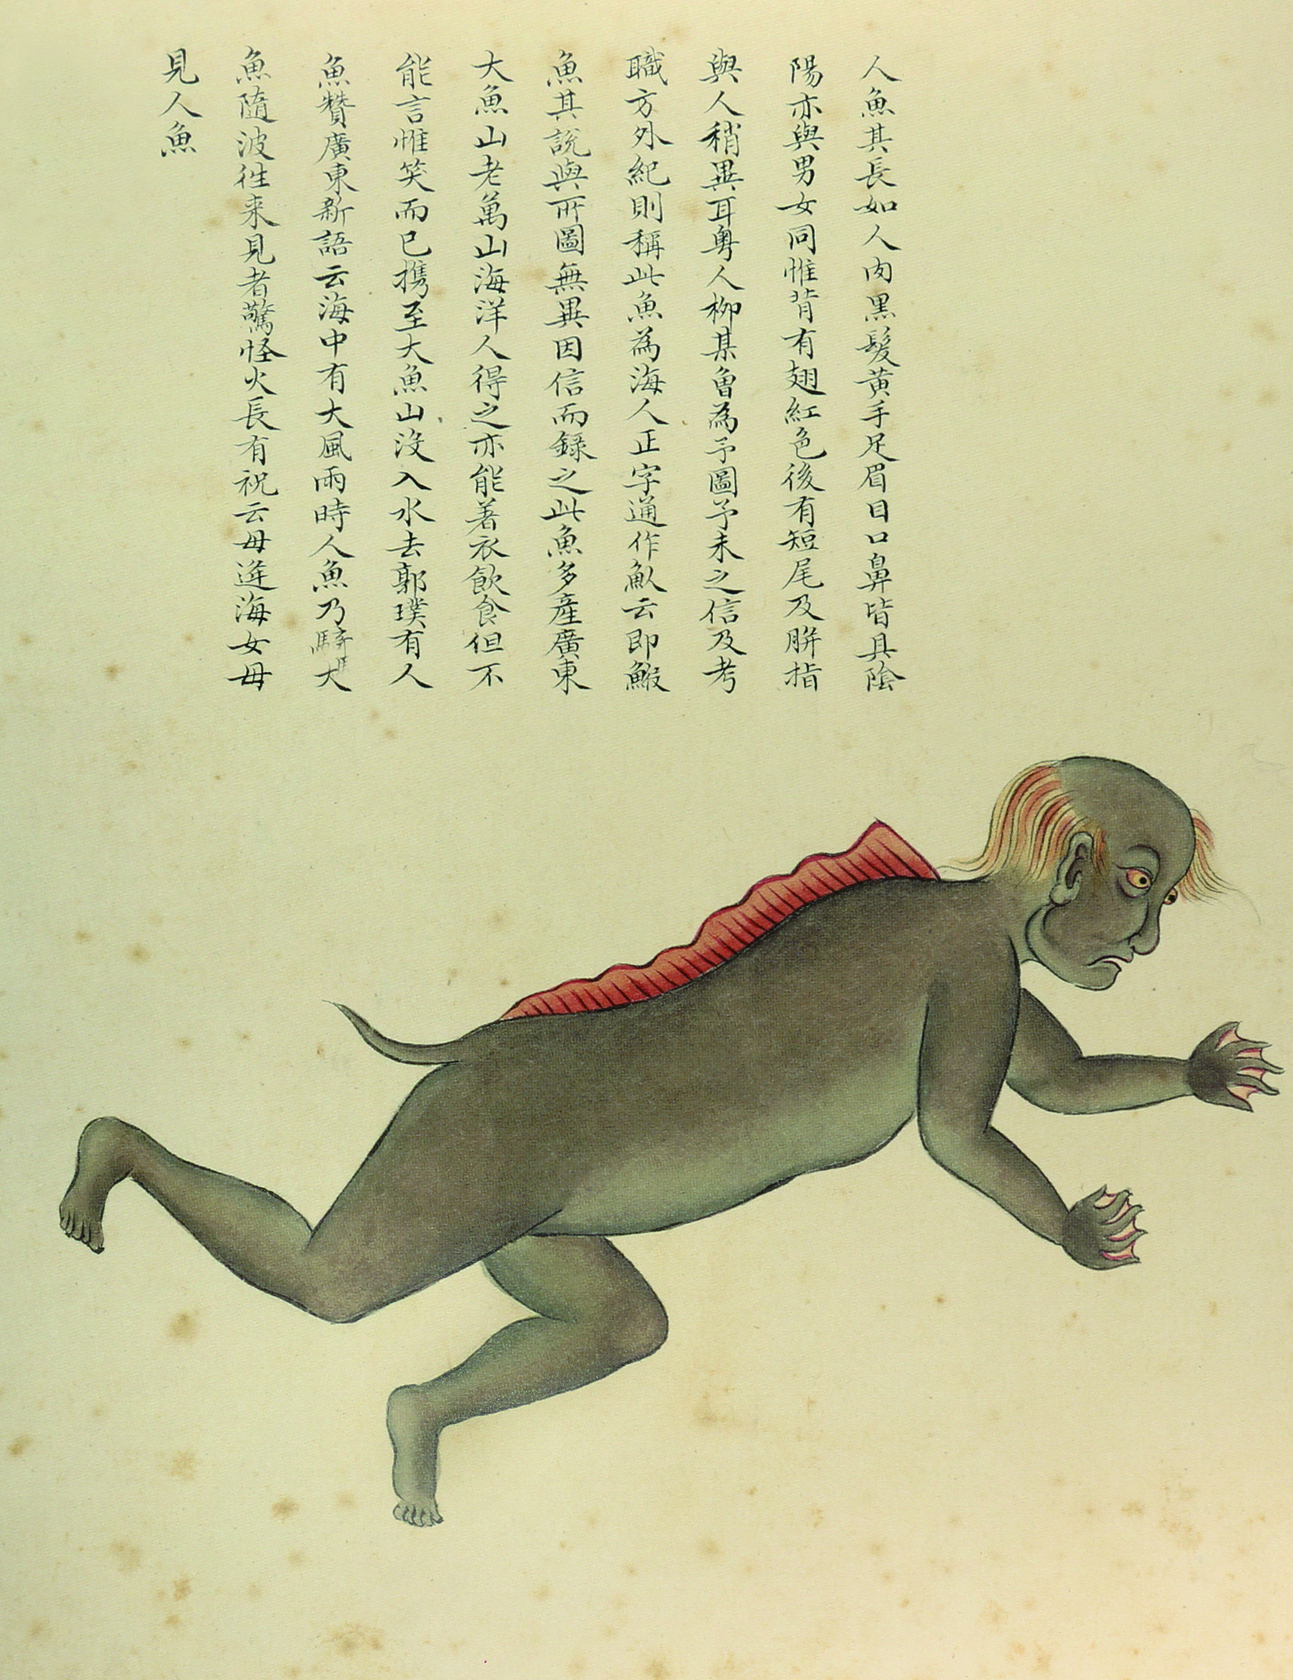 人魚其長如人肉黑髮黃手足眉目口鼻皆具陰
陽亦與男女同惟背有翅紅色後有短尾及胼指
與人稍異耳粵人柳某曾為予圖予未之信及考
職方外紀則稱此魚為海人正字通作魜云即鰕
魚其說與所圖無異因信而錄之此魚多產廣東
大魚山老萬山海洋人得之亦能著衣飲食但不
能言惟笑而已携至大魚山沒入水去郭璞有人
魚贊廣東新語云海中有大風雨時人魚乃騎大
魚隨波徃来見者驚怪火長有祝云毋逢海女毋
見人魚